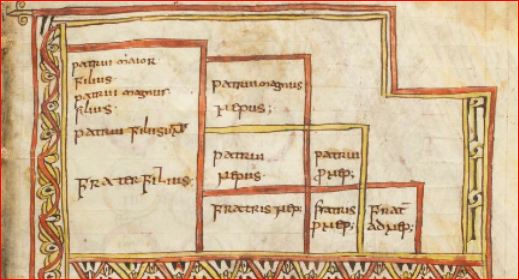 patrui maior
filius
patrui magnus
filius.
patrui filius
Frater Filius;
patrui magnus
nepus;
patrui
nepus.
patrui
ꝓnep;
Fratris nep;
fratris
pnep;
Frat̅
adnep;